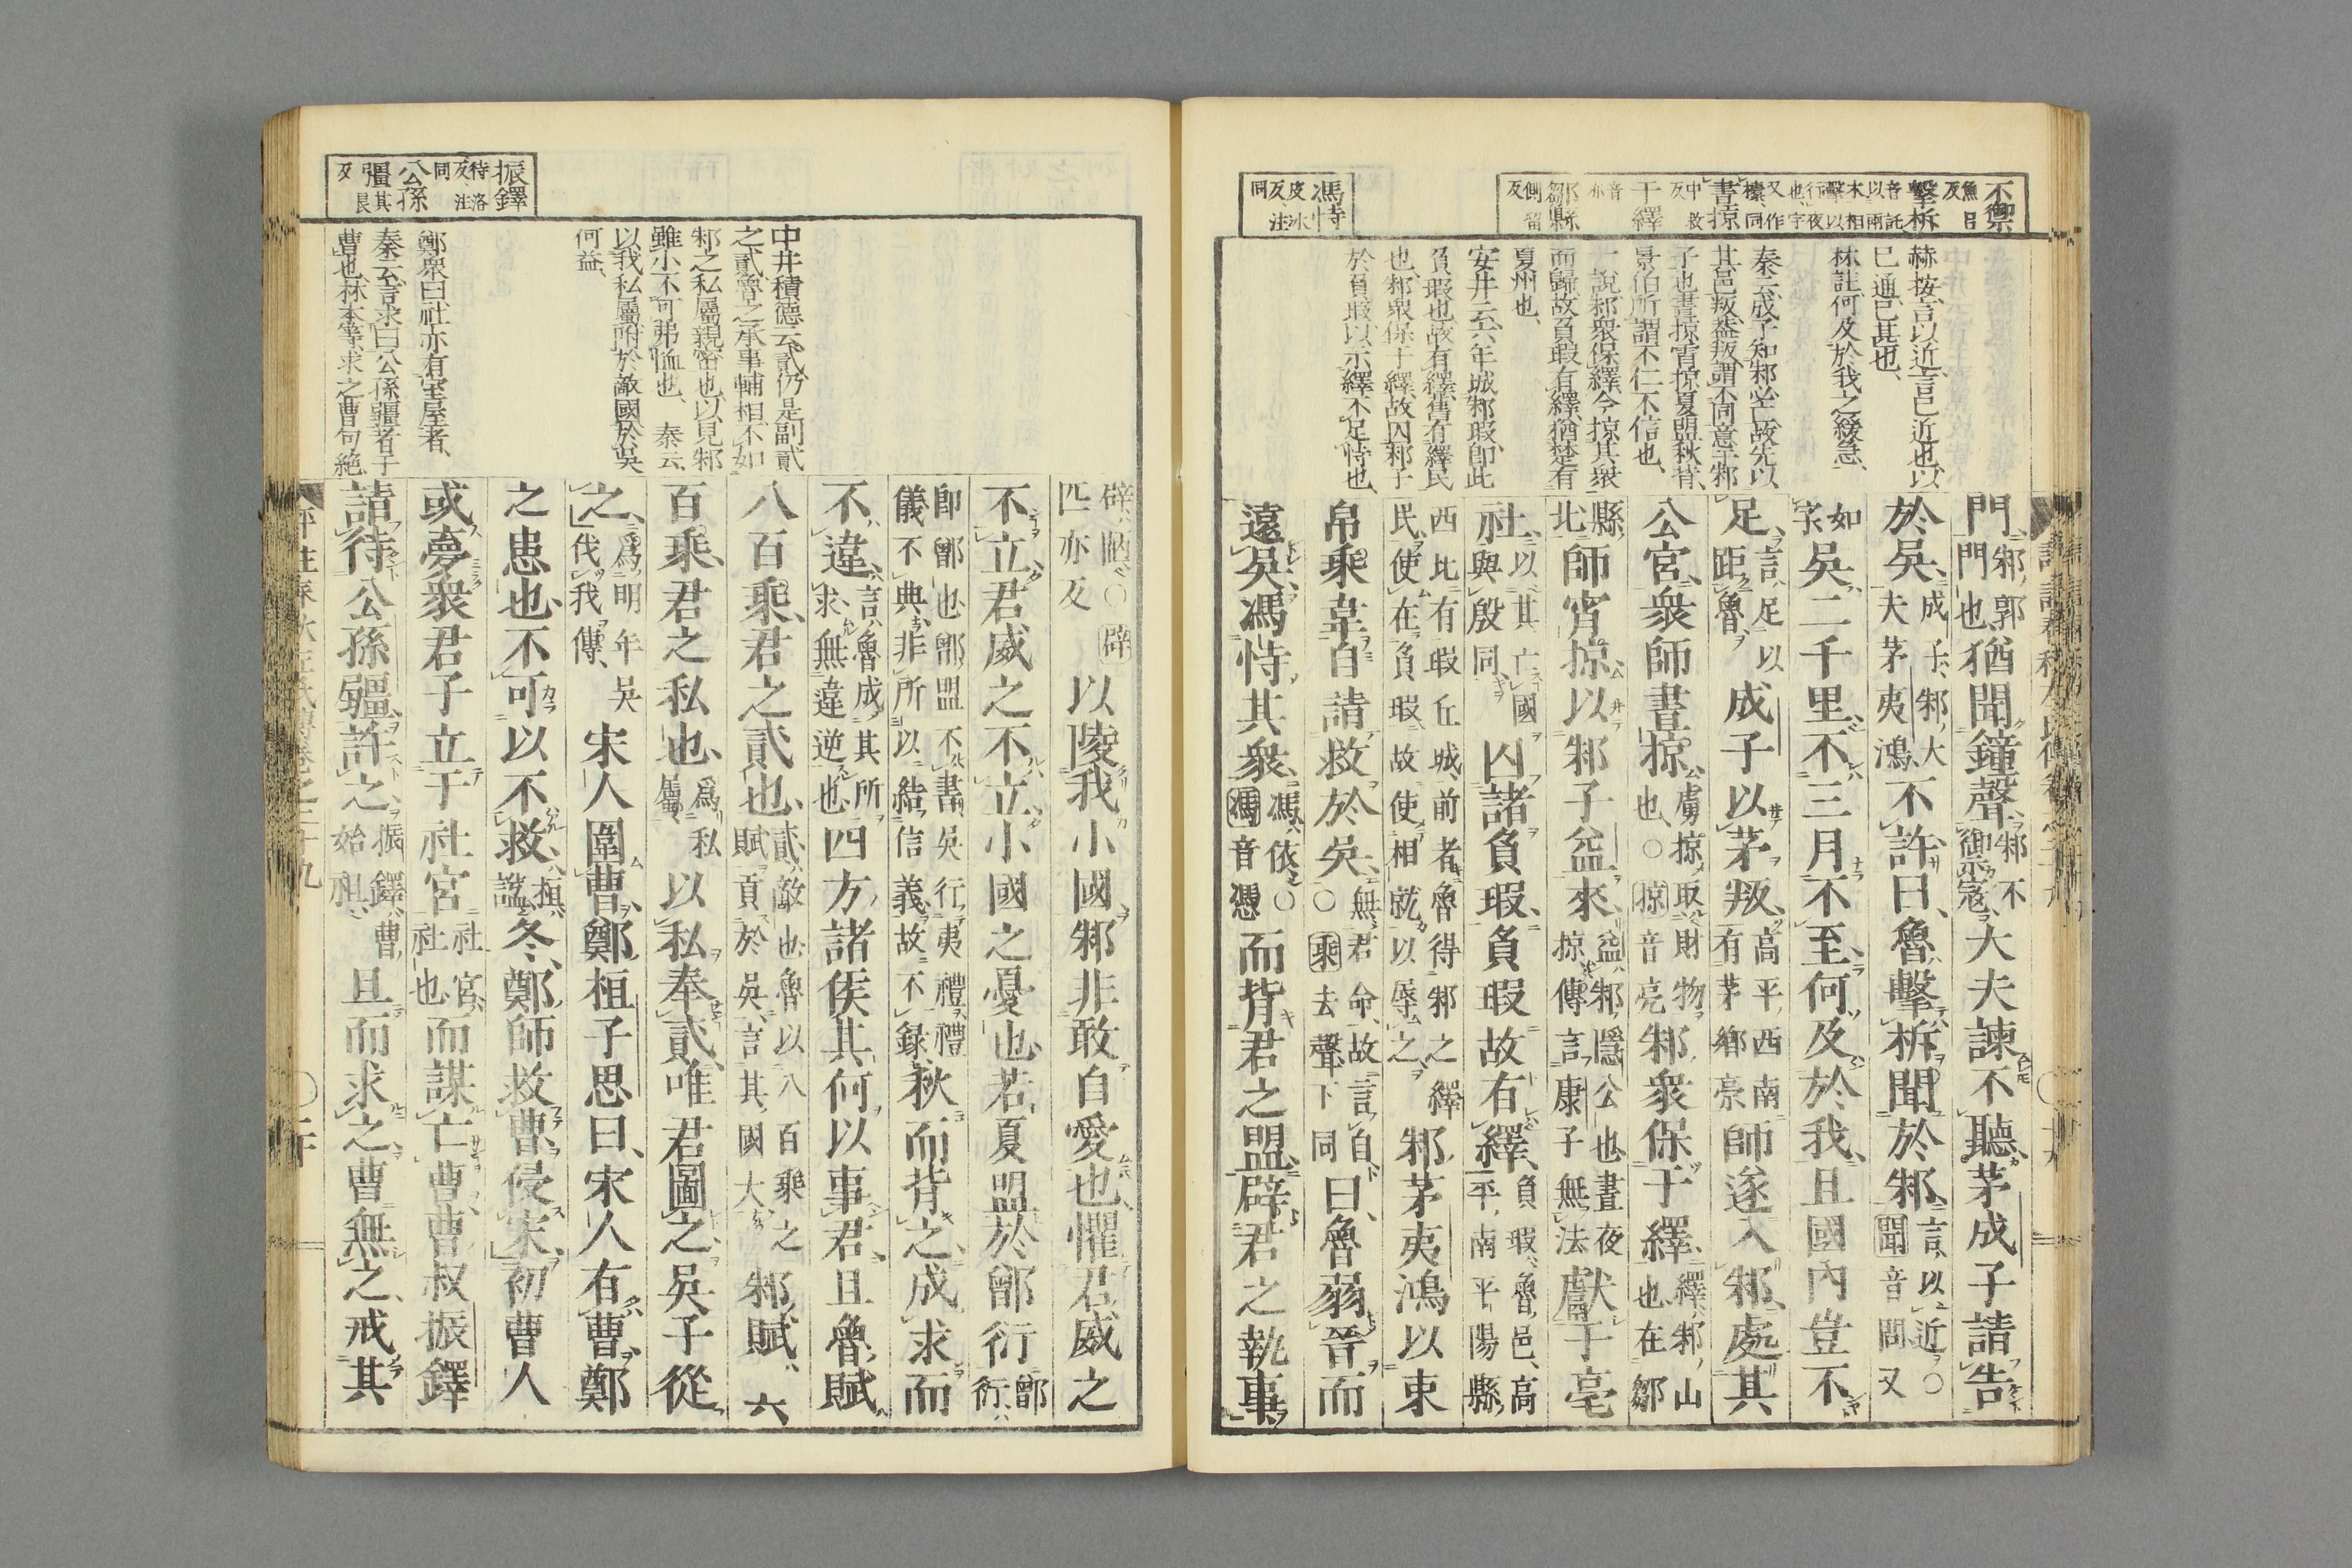 不禦
魚呂反
擊柝
音託以兩木相擊以行夜也字又作㯓同
晝掠
中救反
于繹
音亦
鄒縣
側留反
馮恃
皮冰反注同
赫按言以近言已近也以
已通已甚也
林註何及於我之緩急
秦云成子知邾必亡故先以
其邑叛葢叛謂不同意于邾
子也晝掠宵掠夏盟秋背
景伯所謂不仁不信也
一說邾衆保繹今掠其衆
而歸故負瑕有繹猶楚有
夏州也
安井云六年城邾瑕卽此
負瑕也故有繹舊有繹民
也邾衆保于繹故囚邾子
於負瑕以示繹不足恃也
門邾郭門也猶聞鐘聲邾不御寇大夫諫不聽茅成子請告
於吳成子邾大夫茅夷鴻不許曰魯擊柝聞於邾言以近○聞音問又
如字吳二千里不三月不至何及於我且國內豈不
足言足以距魯成子以茅叛高平西南有茅鄉亭師遂入邾處其
公宮衆師晝掠虜掠取財物也○掠音亮邾衆保于繹繹邾山也在鄒
縣北師宵掠以邾子益來益邾隱公也晝夜掠傳言康子無法獻于亳
社以其亡國與殷同囚諸負瑕負瑕故有繹負瑕魯邑高平南平陽縣
西北有瑕丘城前者魯得邾之繹民使在負瑕故使相就以辱之邾茅夷鴻以束
帛乘韋自請救於吳無君命故言自○乘去聲下同曰魯弱晉而
遠吳馮恃其衆馮依○馮音憑而背君之盟辟君之執事
中井積德云貳仍是副貳
之貳魯之承事輔相不如
邾之私屬親密也以見邾
雖小不可弗恤也 秦云
以我私屬附於敵國於吳
何益
鄭衆曰社亦有室屋者
秦云言求曰公孫疆者于
曹也林本等求之曹句絶
振鐸
待洛反注同
公孫
彊其良反
辟陋○辟匹亦反以陵我小國邾非敢自愛也懼君威之
不立君威之不立小國之憂也若夏盟於鄫衍鄫衍
卽鄫也鄫盟不書吳行夷禮禮儀不典非所以結信義故不錄秋而背之成求而
不違言魯成其所求無違逆也四方諸侯其何以事君且魯賦
八百乘君之貳也貳敵也魯以八百乘之賦貢於吳言其國大邾賦六
百乘君之私也爲私屬以私奉貳唯君圖之吳子從
之爲明年吳伐我傳宋人圍曹鄭桓子思曰宋人有曹鄭
之患也不可以不救桓謚冬鄭師救曹侵宋初曹人
或夢衆君子立于社宮社宮社也而謀亡曹曹叔振鐸
請待公孫疆許之振鐸曹始祖且而求之曹無之戒其